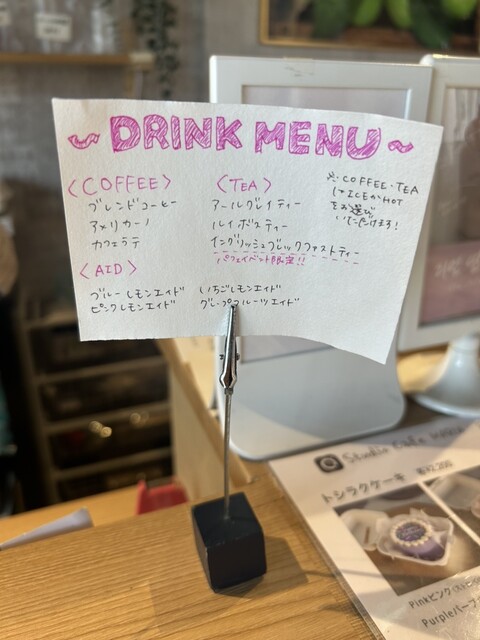 ~DRINK MENU~
〈COFFEE〉
ブレンドコーヒー
アメリカーノ
カフェラテ
〈TEA〉
アールグレイティー
ルイボスティー
イングリッシュブレックファストティー
パフェイベント限定!!
※COFFEE・TEA
はICEかHOT
をお選び
いただけます!
〈AID〉
ブルーレモンエイド
ピンクレモンエイド
いちごレモンエイド
グレープフルーツエイド
Studio Cafe
トシラクケーキ ¥2,200
Pinkピンク
Purpleパープ